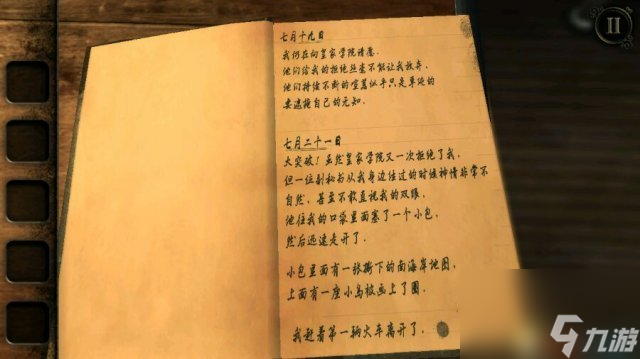 七月十九日
我仍在向皇家学院请愿.
他们给我的拒绝丝毫不能让我放弃.
他们持续不断的喧嚣似乎只是单纯的
要遮掩自己的无知.
七月二十一日
大突破！虽然皇家学院又一次拒绝了我,
但一位副秘书从我身边经过的时候神情非常不
自然, 甚至不敢直视我的双眼.
他往我的口袋里面塞了一个小包,
然后迅速走开了.
小包里面有一张撕下的南海岸地图,
上面有一座小岛被画上了圈.
我赶着第一辆火车离开了.
九游